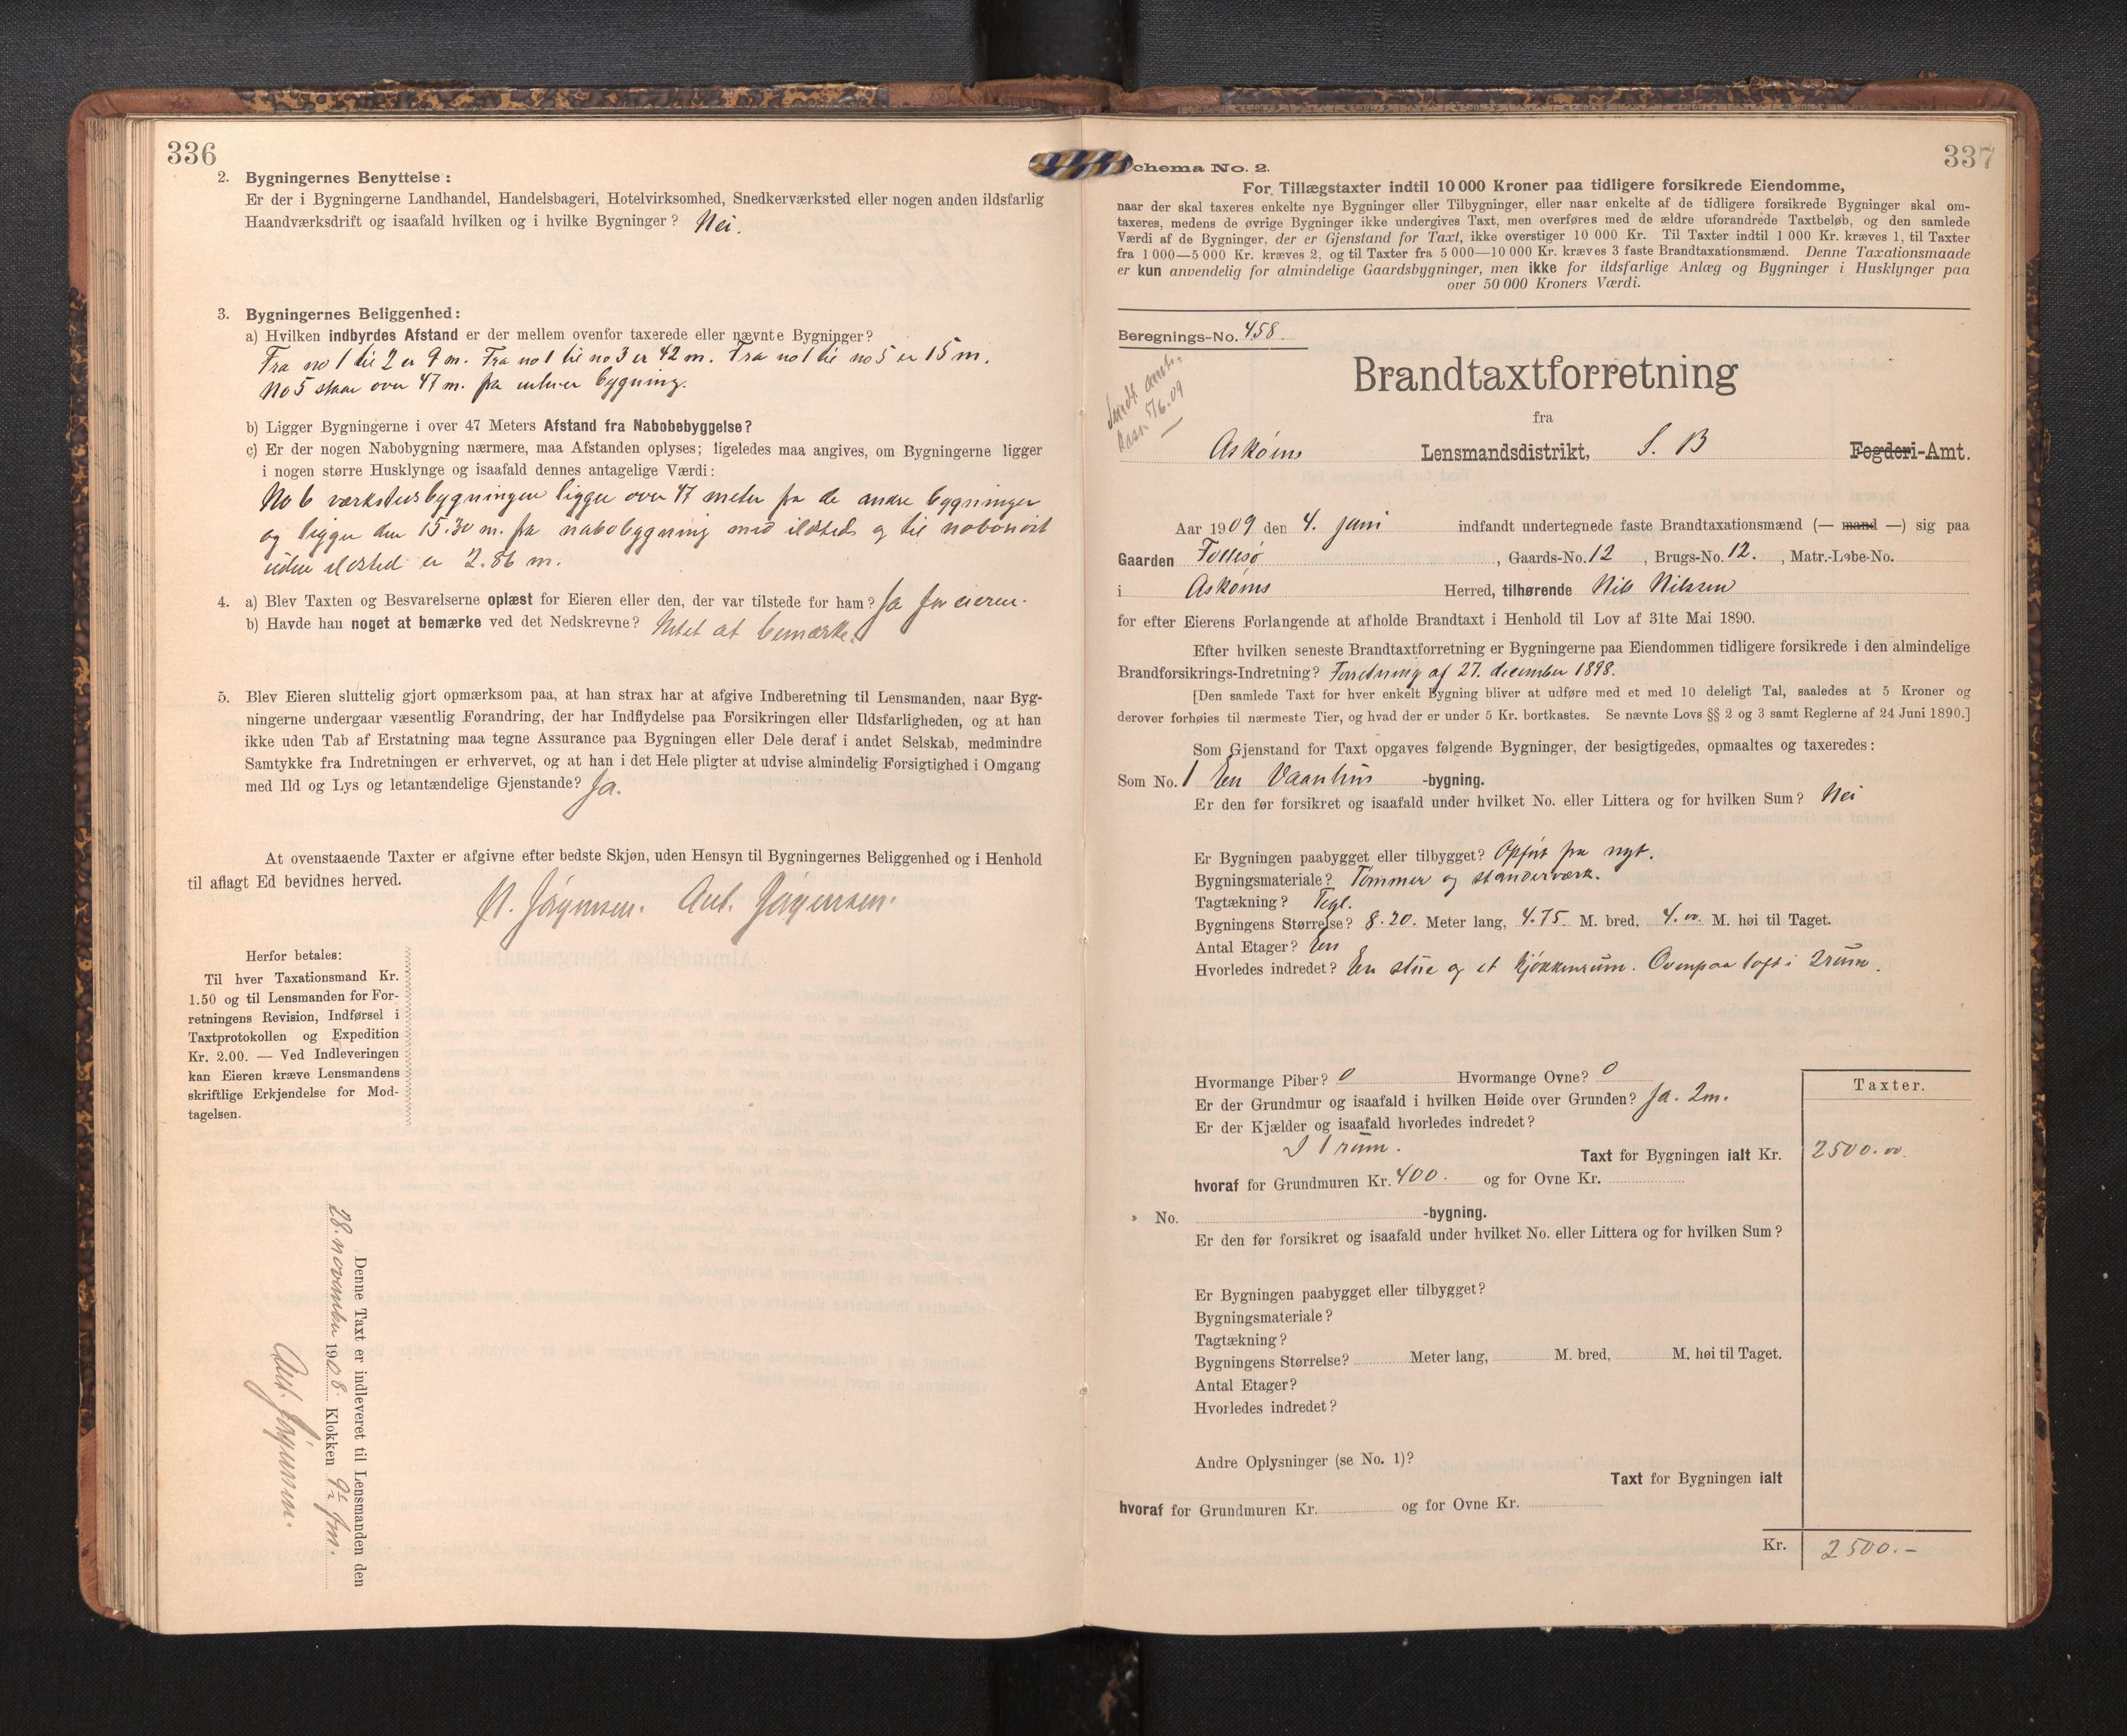 336
2. Bygningernes Benyttelse:
Er der i Bygningerne Landhandel, Handelsbageri, Hotelvirksomhed, Snedkerværksted eller nogen anden ildsfarlig
Haandværksdrift og isaafald hvilken og i hvilke Bygninger? Nei.
3. Bygningernes Beliggenhed:
a) Hvilken indbyrdes Afstand er der mellem ovenfor taxerede eller nævnte Bygninger?
Fra no 1 til 2 er 9 m. Fra no 1 til no 3 er 42 m. Fra no 1 til no 5 er 15 m.
No 5 staar over 47 m. fra enhver bygning.
b) Ligger Bygningerne i over 47 Meters Afstand fra Nabobebyggelse?
c) Er der nogen Nabobygning nærmere, maa Afstanden oplyses; ligeledes maa angives, om Bygningerne ligger
i nogen større Husklynge og isaafald dennes antagelige Værdi:
No 6 værkstedsbygningen ligger over 47 meter fra de andre bygninger
og ligger den 15.30 m. fra nabobyggning med ildsted og til nabonöst
uden ildsted er 2.86 m.
4. a) Blev Taxten og Besvarelserne oplæst for Eieren eller den, der var tilstede for ham? Ja for eieren.
b) Havde han noget at bemærke ved det Nedskrevne? Intet at bemærke.
5. Blev Eieren sluttelig gjort opmærksom paa, at han strax har at afgive Indberetning til Lensmanden, naar Byg-
ningerne undergaar væsentlig Forandring, der har Indflydelse paa Forsikringen eller Ildsfarligheden, og at han
ikke uden Tab af Erstatning maa tegne Assurance paa Bygningen eller Dele deraf i andet Selskab, medmindre
Samtykke fra Indretningen er erhvervet, og at han i det Hele pligter at udvise almindelig Forsigtighed i Omgang
med Ild og Lys og letantændelige Gjenstande? Ja.
At ovenstaaende Taxter er afgivne efter bedste Skjøn, uden Hensyn til Bygningernes Beliggenhed og i Henhold
til aflagt Ed bevidnes herved.
N. Jörgensen. Ant. Jörgensen.
Herfor betales:
Til hver Taxationsmand Kr.
1.50 og til Lensmanden for For-
retningens Revision, Indførsel i
Taxtprotokollen og Expedition
Kr. 2.00. — Ved Indleveringen
kan Eieren kræve Lensmandens
skriftlige Erkjendelse for Mod-
tagelsen.
Denne Taxt er indleveret til Lensmanden den
28. november 1908. Klokken 9 fm.
Ant. Jörgensen.
337
Schema No. 2.
For Tillægstaxter indtil 10 000 Kroner paa tidligere forsikrede Eiendomme,
naar der skal taxeres enkelte nye Bygninger eller Tilbygninger, eller naar enkelte af de tidligere forsikrede Bygninger skal om-
taxeres, medens de øvrige Bygninger ikke undergives Taxt, men overføres med de ældre uforandrede Taxtbeløb, og den samlede
Værdi af de Bygninger, der er Gjenstand for Taxt, ikke overstiger 10 000 Kr. Til Taxter indtil 1 000 Kr. kræves 1, til Taxter
fra 1 000—5 000 Kr. kræves 2, og til Taxter fra 5 000—10 000 Kr. kræves 3 faste Brandtaxationsmænd. Denne Taxationsmaade
er kun anvendelig for almindelige Gaardsbygninger, men ikke for ildsfarlige Anlæg og Bygninger i Husklynger paa
over 50 000 Kroners Værdi.
Beregnings-No. 458.
Sendt 5/6.09
Brandtaxtforretning
fra
Asköens Lensmandsdistrikt, S. B Fogderi-Amt.
Aar 1909 den 4. juni indfandt undertegnede faste Brandtaxationsmænd (— mand —) sig paa
Gaarden Follesö, Gaards-No. 12, Brugs-No. 12., Matr.-Løbe-No.
i Asköens Herred, tilhørende Nils Nilssen
for efter Eierens Forlangende at afholde Brandtaxt i Henhold til Lov af 31te Mai 1890.
Efter hvilken seneste Brandtaxtforretning er Bygningerne paa Eiendommen tidligere forsikrede i den almindelige
Brandforsikrings-Indretning? Forretning af 27. december 1898.
[Den samlede Taxt for hver enkelt Bygning bliver at udføre med et med 10 deleligt Tal, saaledes at 5 Kroner og
derover forhøies til nærmeste Tier, og hvad der er under 5 Kr. bortkastes. Se nævnte Lovs §§ 2 og 3 samt Reglerne af 24 Juni 1890.]
Som Gjenstand for Taxt opgaves følgende Bygninger, der besigtigedes, opmaaltes og taxeredes:
Som No. 1 En Vaanhus -bygning.
Er den før forsikret og isaafald under hvilket No. eller Littera og for hvilken Sum? Nei
Er Bygningen paabygget eller tilbygget? Opført fra nyt.
Bygningsmateriale? Tømmer og standerværk.
Tagtækning? Tegl.
Bygningens Størrelse? 8.20. Meter lang, 4.75 M. bred, 4.00 M. høi til Taget.
Antal Etager? En
Hvorledes indredet? En stue og et kjökkenrum. Ovenpaa loft i 2 rum.
Hvormange Piber? 0 Hvormange Ovne? 0
Er der Grundmur og isaafald i hvilken Høide over Grunden? Ja. 2m.
Er der Kjælder og isaafald hvorledes indredet?
I 1 rum.
Taxter.
Taxt for Bygningen ialt Kr. 2500.00.
hvoraf for Grundmuren Kr. 400. og for Ovne Kr.
» No. -bygning.
Er den før forsikret og isaafald under hvilket No. eller Littera og for hvilken Sum?
Er Bygningen paabygget eller tilbygget?
Bygningsmateriale?
Tagtækning?
Bygningens Størrelse? Meter lang, M. bred, M. høi til Taget.
Antal Etager?
Hvorledes indredet?
Andre Oplysninger (se No. 1)?
Taxt for Bygningen ialt
hvoraf for Grundmuren Kr. og for Ovne Kr.
Kr. 2500.-